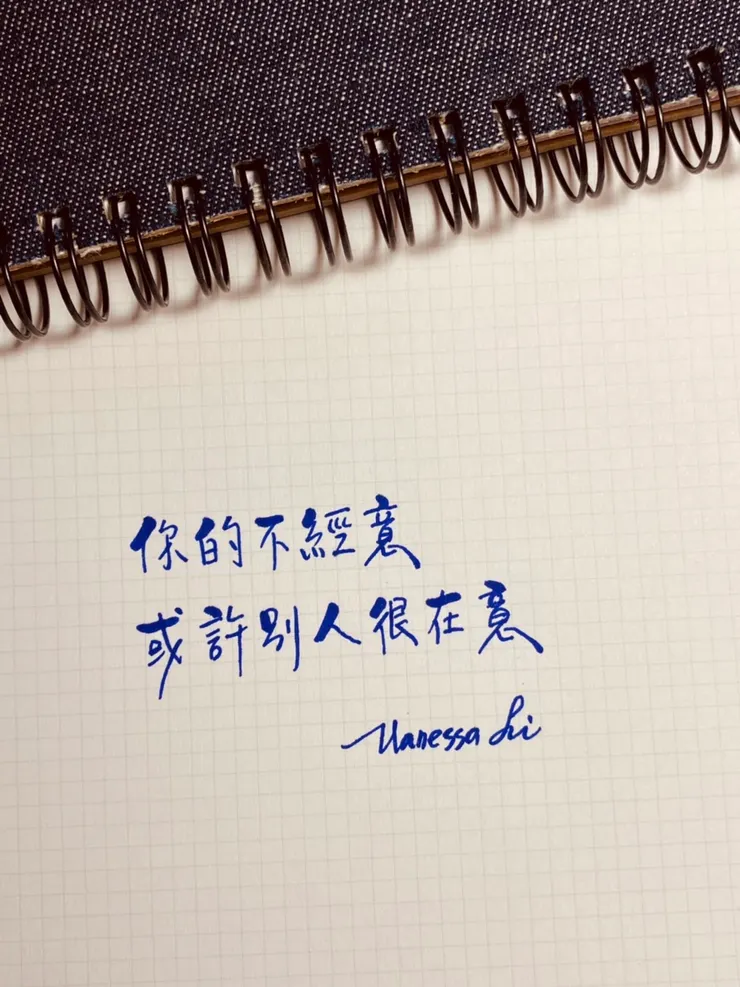 你的不經意
或許別人很在意
Vanessa Li